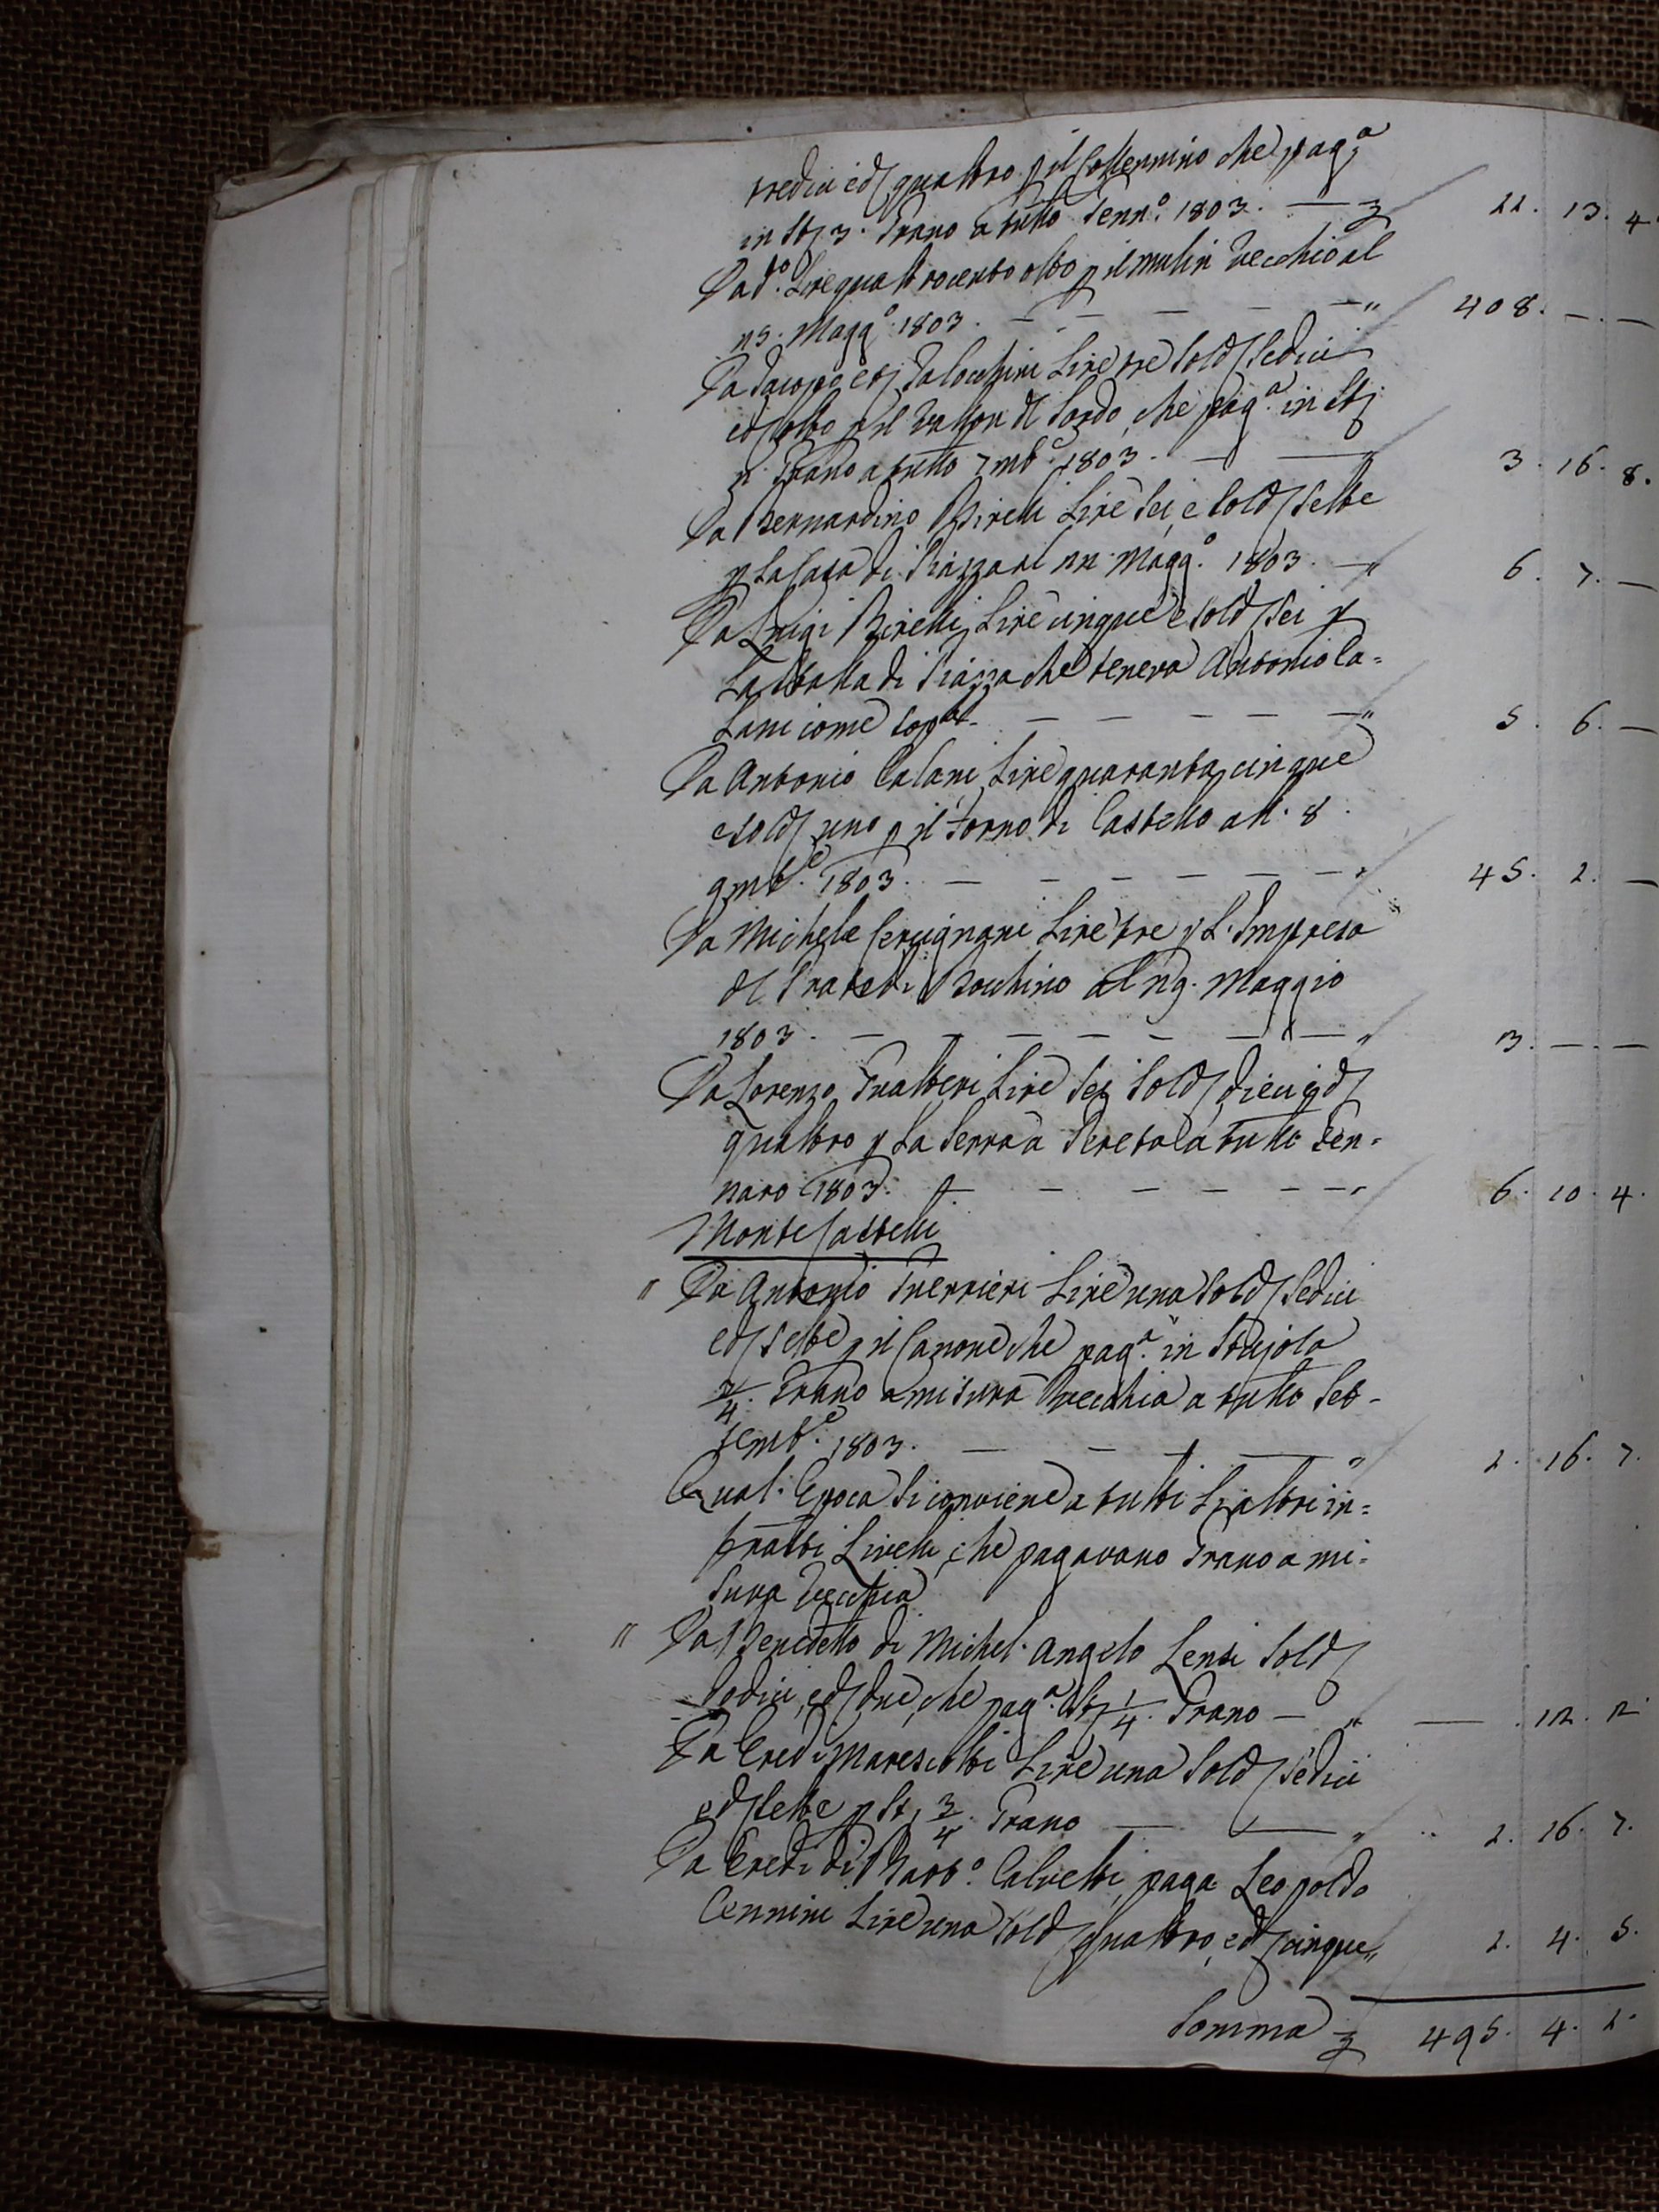 tredici e d quattro p il Sollennino che pag.a
in st 3. Grano a tutto Genn.o 1803. — £ 11. 13. 4
Da d.o Lire quattrocento otto p il mulin Vecchio al
n5. Magg.o 1803. — — — — — " 408. — . —
Da Jacopo Lire tre Sold Sedici
e d otto p il Vallon del Sordo, che pag.a in st
n. Grano a tutto 7mb.e 1803. — — " 3. 16. 8.
Da Bernardino Birelli Lire Sei, e Sold Sette
p La Casa di Piazza al nn. Magg.o 1803. — " 6. 7. —
Da Luigi Birelli Lire cinque e Sold Sei p
La Stalla di Piazza che teneva Antonio Ca=
lani come sop.a — — — — — " 5. 6. —
Da Antonio Calani Lire quaranta cinque
e sold uno p il Forno di Castello all. 8.
9mb.e 1803. — — — — — — " 45. 1. —
Da Michele Cerugnani Lire tre p L. Impresa
del Prato di Bocchino al ng. Maggio
1803. — — — — — — — " 3. — . —
Da Lorenzo Gualtieri Lire Sei Sold dieci e d
quattro p La Serra a tutto Gen=
naro 1803. — — — — — — " 6. 10. 4.
Monte Castelli
" Da Antonio Guerrieri Lire una Sold Sedici
e d Sette p il Canone che pag.a in Stajola
3/4. Grano a misura Vecchia a tutto Set-
temb.e 1803. — — — — " 1. 16. 7.
Qual. Epoca Si conviene a tutti Li altri in=
fratti Livelli, che pagavano Grano a mi=
sura Vecchia
" Da Benedetto di Michel. Angelo Lensi Sold
dodici, e d due, che pag.a St 1/4. Grano — " — . 12. 2
Da Eredi Marescotti Lire una Sold Sedici
e d Sette p St. 3/4. Grano — — " 1. 16. 7.
Da Eredi di Batt.o Calvetti, paga Leopoldo
Cennini Lire una Sold quattro, e d cinque " 1. 4. 5.
Somma £ 495. 4. 1.